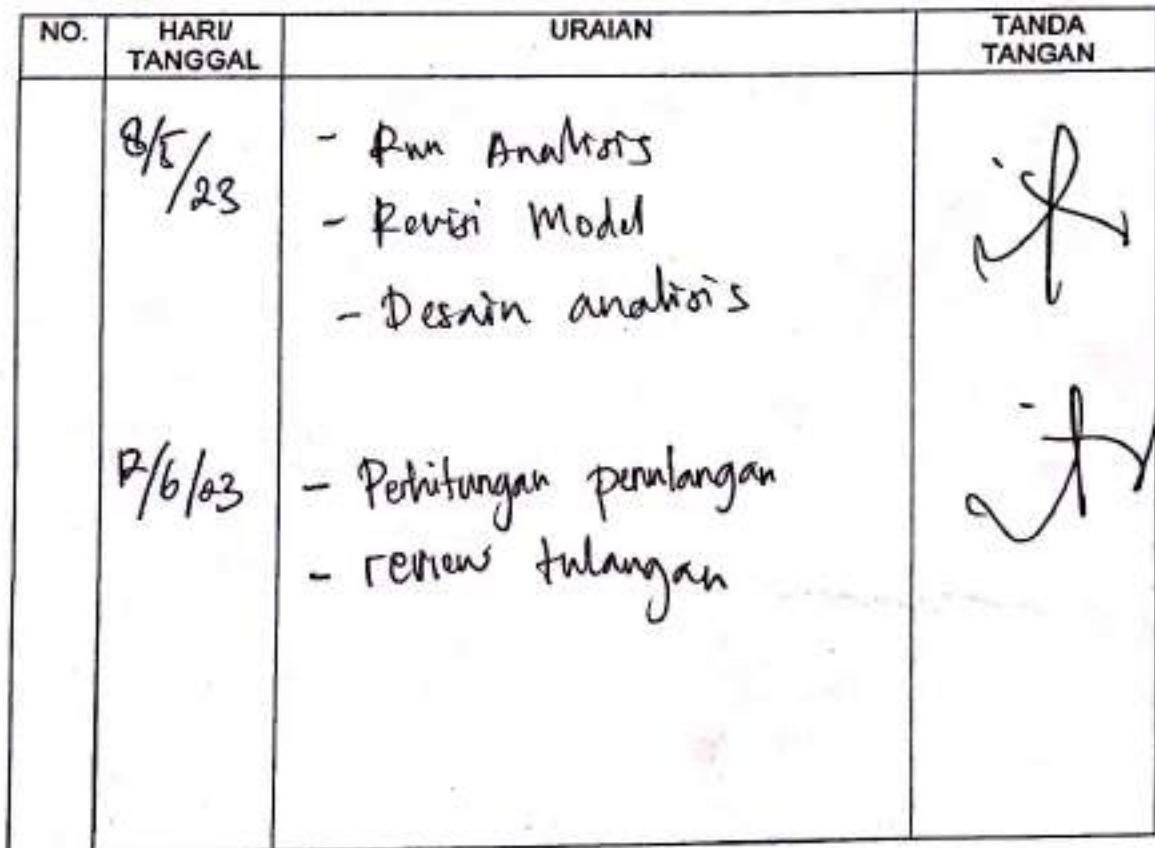 NO.
HARI/
TANGGAL
URAIAN
TANDA
TANGAN
8/5/23
- Run Analisis
- Revisi Model
- Desain analisis
/6/23
- Perhitungan penulangan
- review tulangan